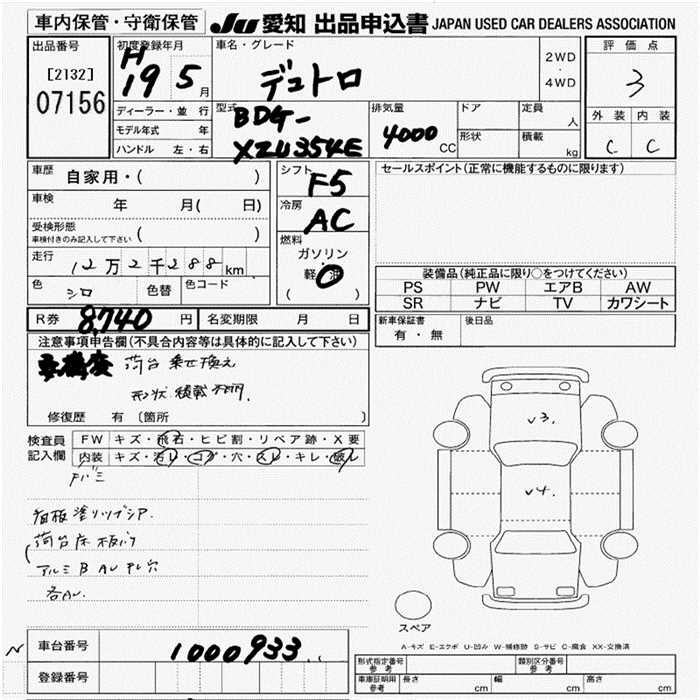 車内保管・守衛保管 JU 愛知 出品申込書 JAPAN USED CAR DEALERS ASSOCIATION
出品番号
[2132]
07156
初度登録年月
H
19 5 月
車名・グレード
デュトロ
2WD
・
4WD
評価点
3
外装 内装
C C
ディーラー・並行
モデル年式 年
ハンドル 左・右
型式
BDG-
XZU354E
排気量
4000 CC
ドア
形状
定員 人
積載 kg
車歴 自家用・( )
車検 年 月( 日)
受検形態
車検付きのみ記入して下さい ( )
走行 12万2千288 km
色 シロ 色替 色コード
シフト F5
冷房 AC
燃料
ガソリン
軽・油
( )
セールスポイント(正常に機能するものに限ります)
装備品(純正品に限り○をつけてください)
PS PW エアB AW
SR ナビ TV カワシート
R券 8,740 円 名変期限 月 日
新車保証書 有・無
後日品
注意事項申告欄(不具合内容等は具体的に記入して下さい)
荷台 乗せ換え
形状 積載 不明.
修復歴 有 〔箇所 〕
検査員
記入欄
FW キズ・飛石・ヒビ割・リペア跡・X要
内装 キズ・汚レ・コゲ・穴・スレ・キレ・破ル
荷台床板
アルミB
V3.
V4.
スペア
A-キズ E-エクボ U-凹み W-補修跡 S-サビ C-腐食 XX-交換済
車台番号 1000933
登録番号
形式指定番号
参考
類別区分番号
参考
車庫証明用
参考
長さ cm 幅 cm 高さ cm